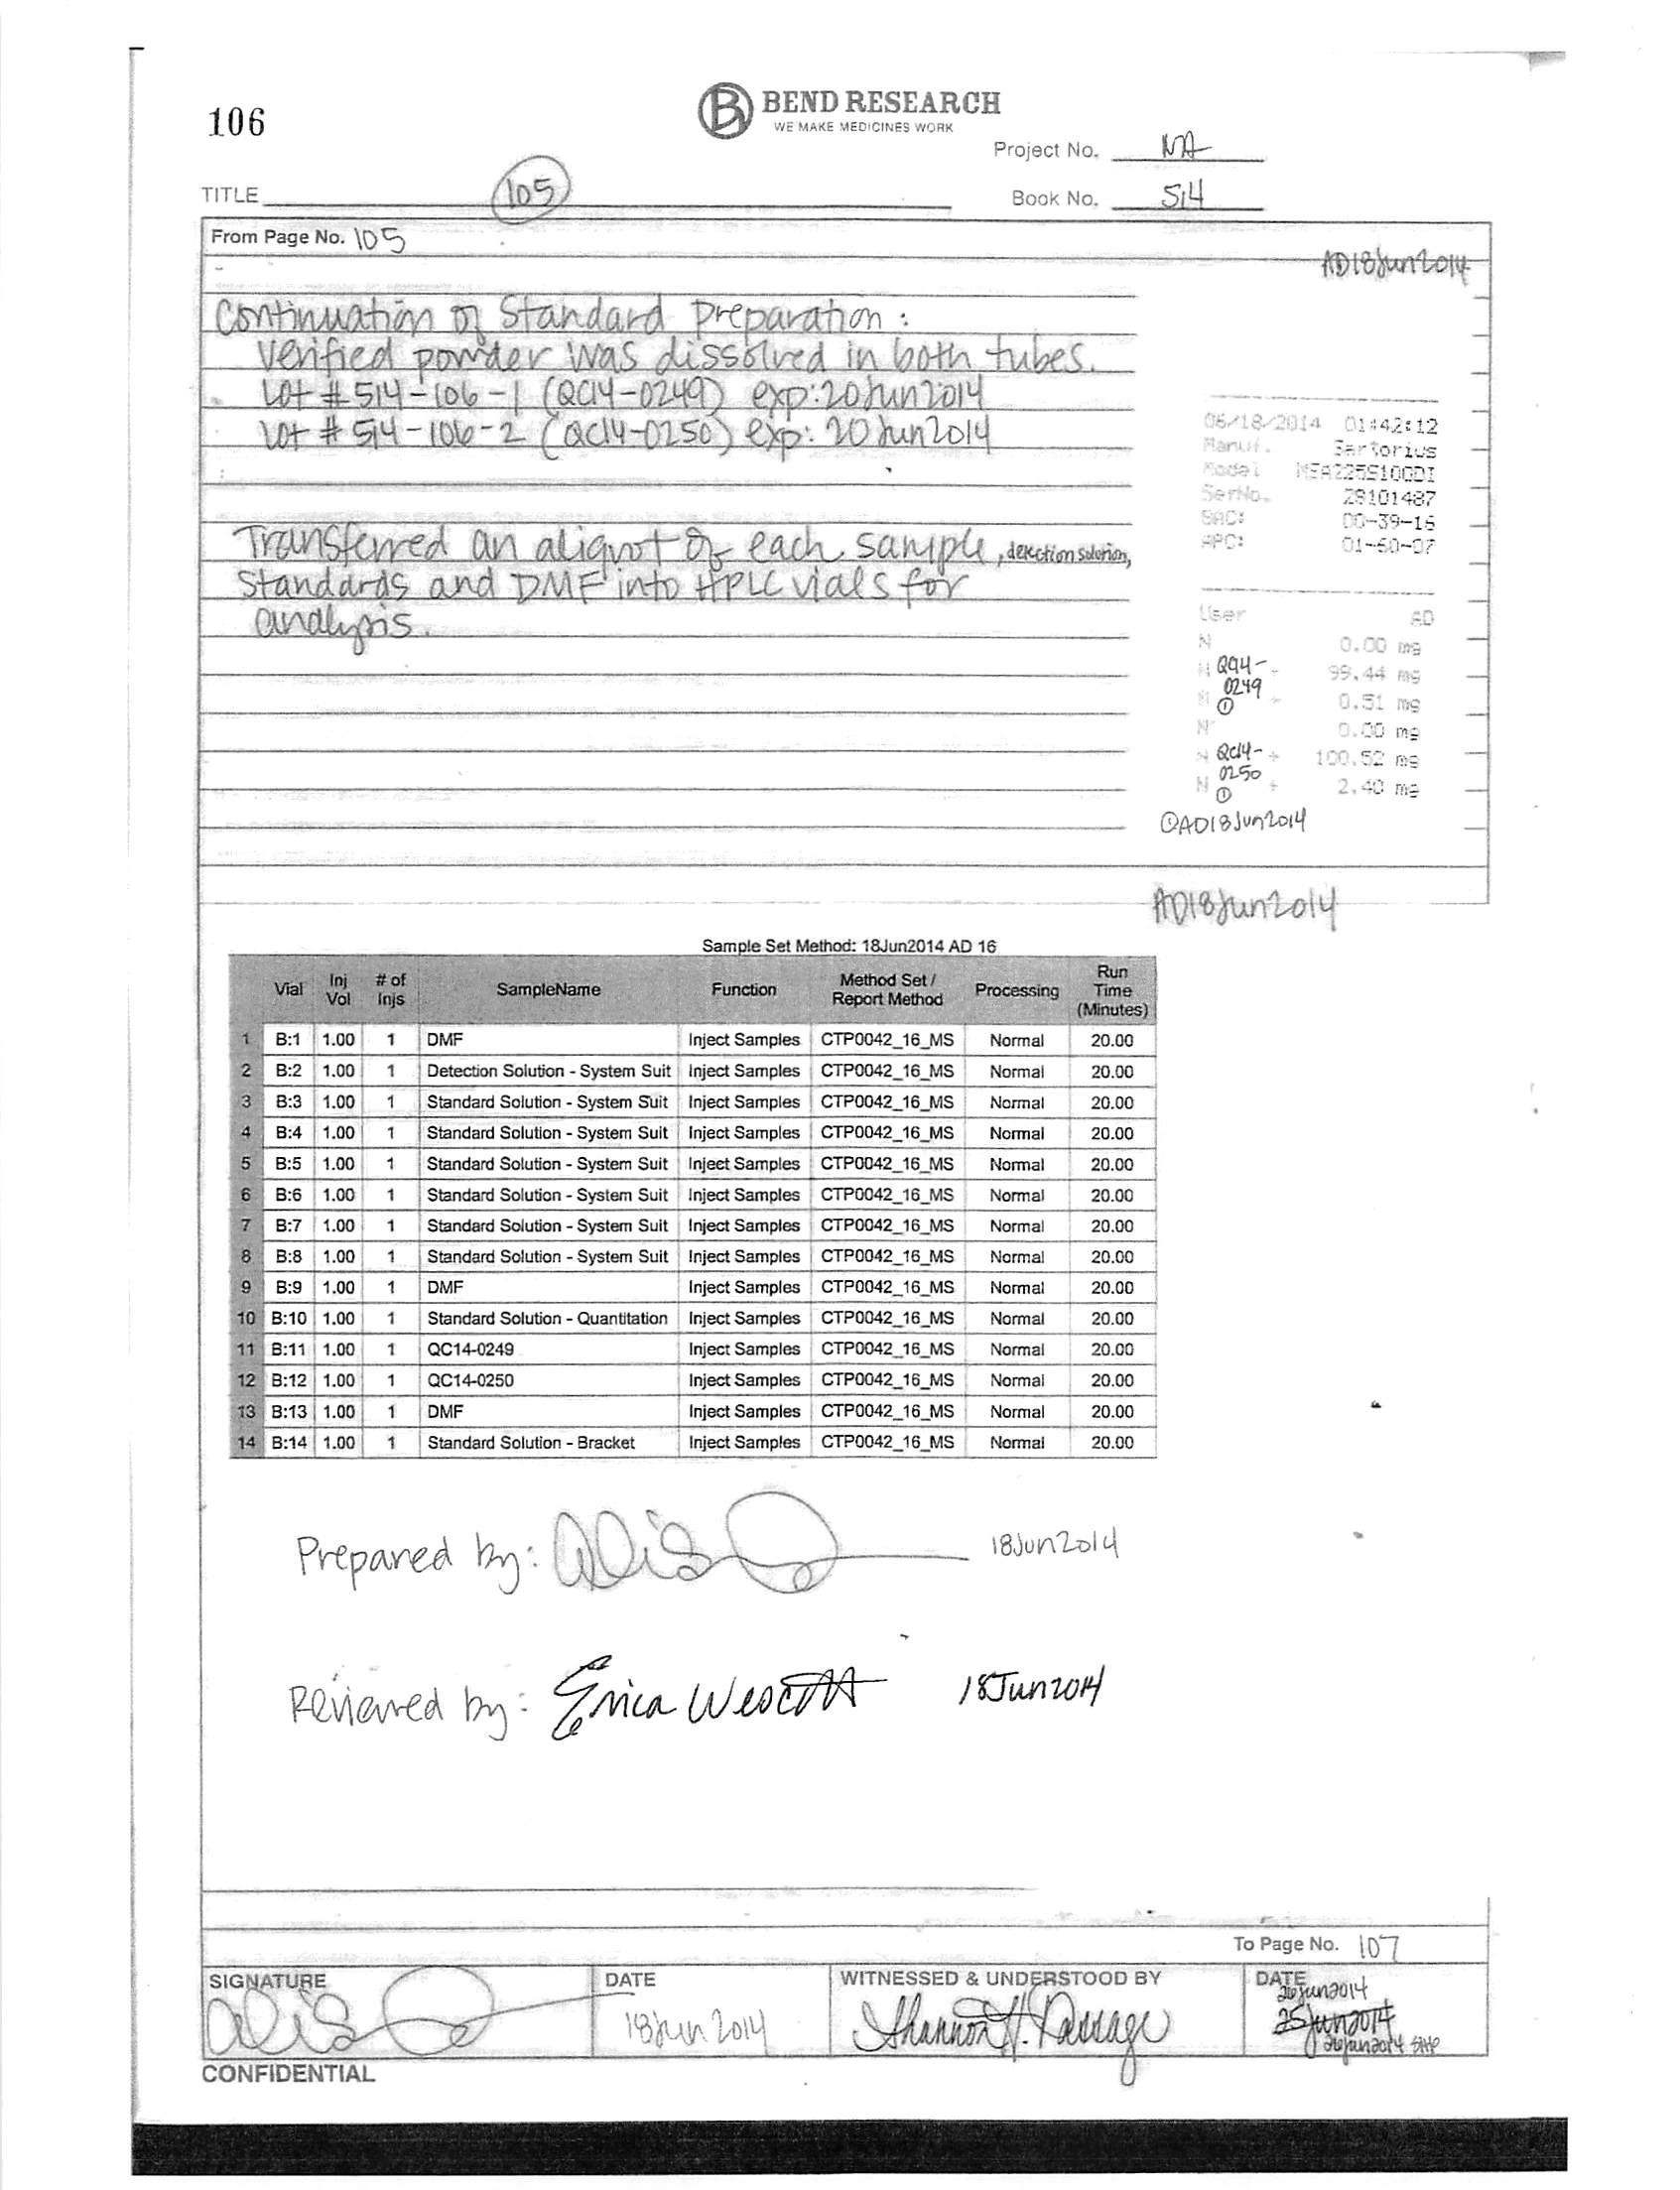 106
BEND RESEARCH
WE MAKE MEDICINES WORK
Project No. NA
TITLE 105
Book No. 514
From Page No. 105
AD18Jun2014
Continuation of Standard Preparation:
Verified powder was dissolved in both tubes.
Lot # 514-106-1 (QC14-0249) exp: 20Jun2014
Lot # 514-106-2 (QC14-0250) exp: 20Jun2014
Transferred an aliquot of each sample, detection solution,
Standards and DMF into HPLC vials for
analysis.
06/18/2014 01:42:12
Manuf. Sartorius
Model MSA225S100DI
SerNo. 29101487
BAC: 00-39-16
APC: 01-60-07
User AD
N 0.00 mg
N QC14- + 99.44 mg
0249
N ① + 0.51 mg
N 0.00 mg
N QC14- + 100.52 mg
0250
N ① + 2.40 mg
①AD18Jun2014
AD18Jun2014
Sample Set Method: 18Jun2014 AD 16
Vial Inj Vol # of Injs SampleName Function Method Set / Report Method Processing Run Time (Minutes)
1 B:1 1.00 1 DMF Inject Samples CTP0042_16_MS Normal 20.00
2 B:2 1.00 1 Detection Solution - System Suit Inject Samples CTP0042_16_MS Normal 20.00
3 B:3 1.00 1 Standard Solution - System Suit Inject Samples CTP0042_16_MS Normal 20.00
4 B:4 1.00 1 Standard Solution - System Suit Inject Samples CTP0042_16_MS Normal 20.00
5 B:5 1.00 1 Standard Solution - System Suit Inject Samples CTP0042_16_MS Normal 20.00
6 B:6 1.00 1 Standard Solution - System Suit Inject Samples CTP0042_16_MS Normal 20.00
7 B:7 1.00 1 Standard Solution - System Suit Inject Samples CTP0042_16_MS Normal 20.00
8 B:8 1.00 1 Standard Solution - System Suit Inject Samples CTP0042_16_MS Normal 20.00
9 B:9 1.00 1 DMF Inject Samples CTP0042_16_MS Normal 20.00
10 B:10 1.00 1 Standard Solution - Quantitation Inject Samples CTP0042_16_MS Normal 20.00
11 B:11 1.00 1 QC14-0249 Inject Samples CTP0042_16_MS Normal 20.00
12 B:12 1.00 1 QC14-0250 Inject Samples CTP0042_16_MS Normal 20.00
13 B:13 1.00 1 DMF Inject Samples CTP0042_16_MS Normal 20.00
14 B:14 1.00 1 Standard Solution - Bracket Inject Samples CTP0042_16_MS Normal 20.00
Prepared by: 18Jun2014
Reviewed by: Erica Wescott 18Jun2014
To Page No. 107
SIGNATURE DATE WITNESSED & UNDERSTOOD BY DATE
26Jun2014
18Jun2014 Shannon H. Passage 25Jun2014
26Jun2014 SHP
CONFIDENTIAL